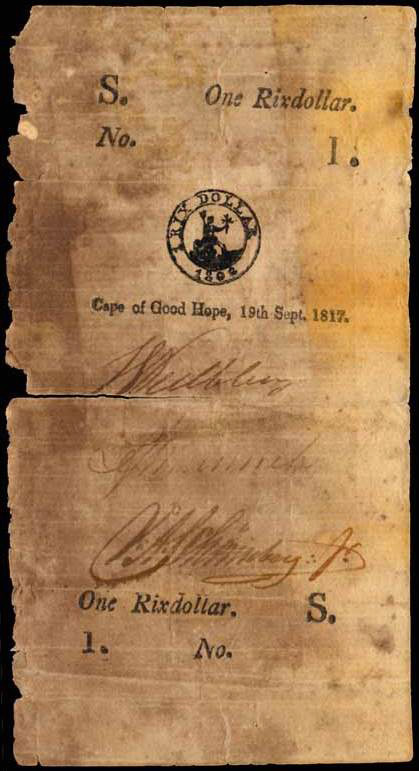 S. One Rixdollar.
No. 1.
1 RIX DOLLAR
1802
Cape of Good Hope, 19th Sept. 1817.
One Rixdollar. S.
1. No.